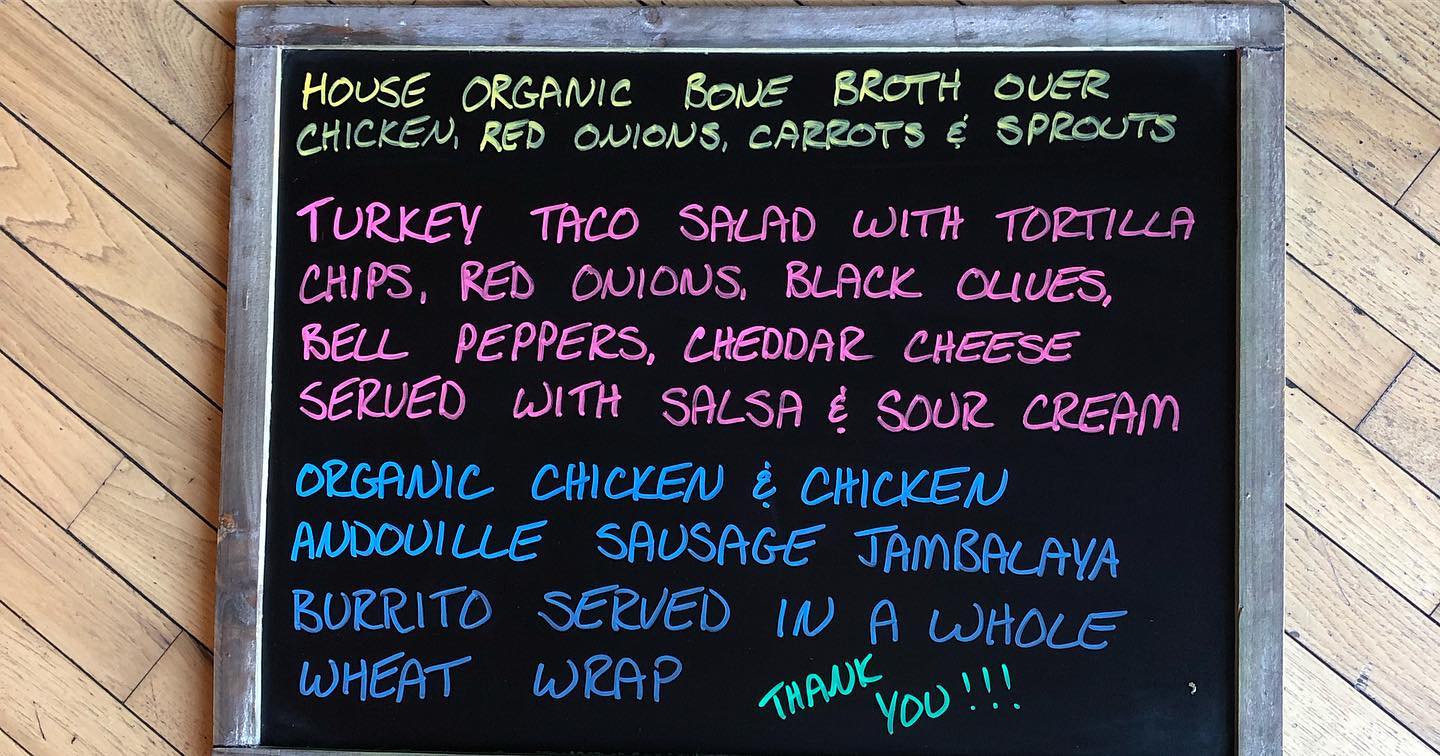 HOUSE ORGANIC BONE BROTH OVER
CHICKEN, RED ONIONS, CARROTS & SPROUTS
TURKEY TACO SALAD WITH TORTILLA
CHIPS, RED ONIONS, BLACK OLIVES,
BELL PEPPERS, CHEDDAR CHEESE
SERVED WITH SALSA & SOUR CREAM
ORGANIC CHICKEN & CHICKEN
ANDOUILLE SAUSAGE JAMBALAYA
BURRITO SERVED IN A WHOLE
WHEAT WRAP
THANK
YOU!!!